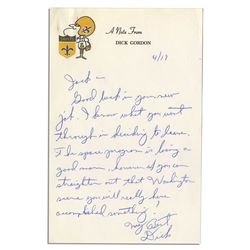 A Note From
DICK GORDON
4/17
Jack –
Good luck in your new
job. I know what you went
through in deciding to leave.
The space program is losing a
good man, however if you can
straighten out that Washington
scene you will really have
accomplished something.
My Best
Dick